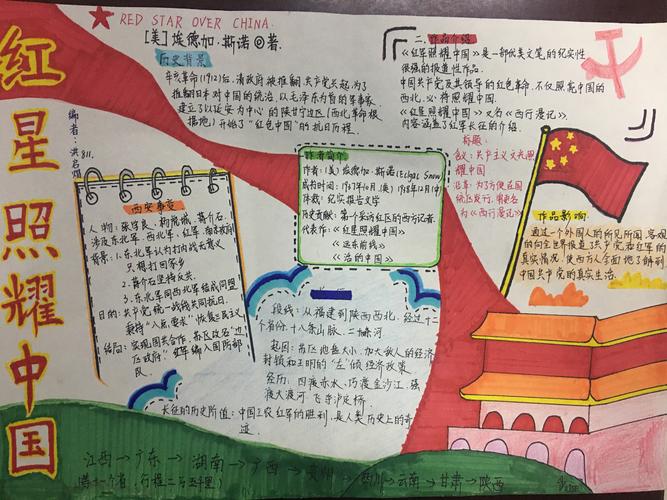 红星照耀中国
★RED STAR OVER CHINA.
[美]埃德加.斯诺◎著.
编者：洪名煊
811.
历史背景
辛亥革命(1912)后,清政府被推翻,共产党兴起,为了
推翻日本对中国的统治,以毛泽东为首的军事家,
建立了以延安为中心的陕甘宁边区(西北革命根
据地)开始了“红色中国”的抗日历程.
二.作品介绍
《红军照耀中国》是一部优美文笔的纪实性
很强的报道性作品.
中国共产党及其领导的红色革命,不仅照亮中国的
西北,必将照耀中国.
《红星照耀中国》又名《西行漫记》.
内容涵盖了红军长征的介绍.
标题:
含义:共产主义文光照
耀中国
沿革:为了方便在国
统区发行,将更名
为《西行漫记》
作者简介
作者:(美)埃德加.斯诺(Edgar Snow)
成行时间:1937年10月(英)1938年2月(中)
体裁:纪实报告文学
历史贡献:第一个采访红区的西方记者.
代表作:《红星照耀中国》
《远东前线》
《活的中国》
作品影响
通过一个外国人的所见所闻,客观
的向全世界报道了共产党和红军的
真实情况,使西方人全面地了解到
中国共产党的真实生活.
西安事变
人物:张学良、杨虎城、蒋介石.
涉及东北军、西北军、红军、南京政府
背景:1.东北军认为打内战无意义
只想打回家乡
2.蒋介石坚持反共.
3.东北军同西北军结成同盟
目的:共产党统一战线共同抗日,
结局:实现国共合作,苏区改名“边
区政府”,红军编入国防部
民
段线:从福建到陕西西北,经过十二
个省份,十八条山脉,二十四条河.
起因:苏区地盘太小,加大敌人的经济
封锁和王明的“左”倾经济政策
经历:四渡赤水、巧渡金沙江、强
渡大渡河、飞夺泸定桥.
长征的历史价值:中国工农红军的胜利,是人类历史上的奇
迹.
江西→广东→湖南→广西→贵州→四川→云南→甘肃→陕西
(借十一个省,行程二万五千里)